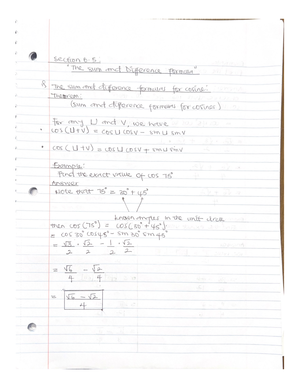 Section 6.5
"The sum and Difference formula"
The sum and difference formulas for cosine:
Theorem:
(Sum and difference formulas for cosines)
For any U and V, we have
• cos(U+V) = cosU cosV - sinU sinV
• cos(U+V) = cosU cosV + sinU sinV
Example:
Find the exact value of cos 75°
Answer
Note that 75° = 30° + 45°
known angles in the unit circle
then cos(75°) = cos(30° + 45°)
= cos 30° cos 45° - sin 30° sin 45°
= √3/2 · √2/2 - 1/2 · √2/2
= √6/4 - √2/4
= √6 - √2 / 4